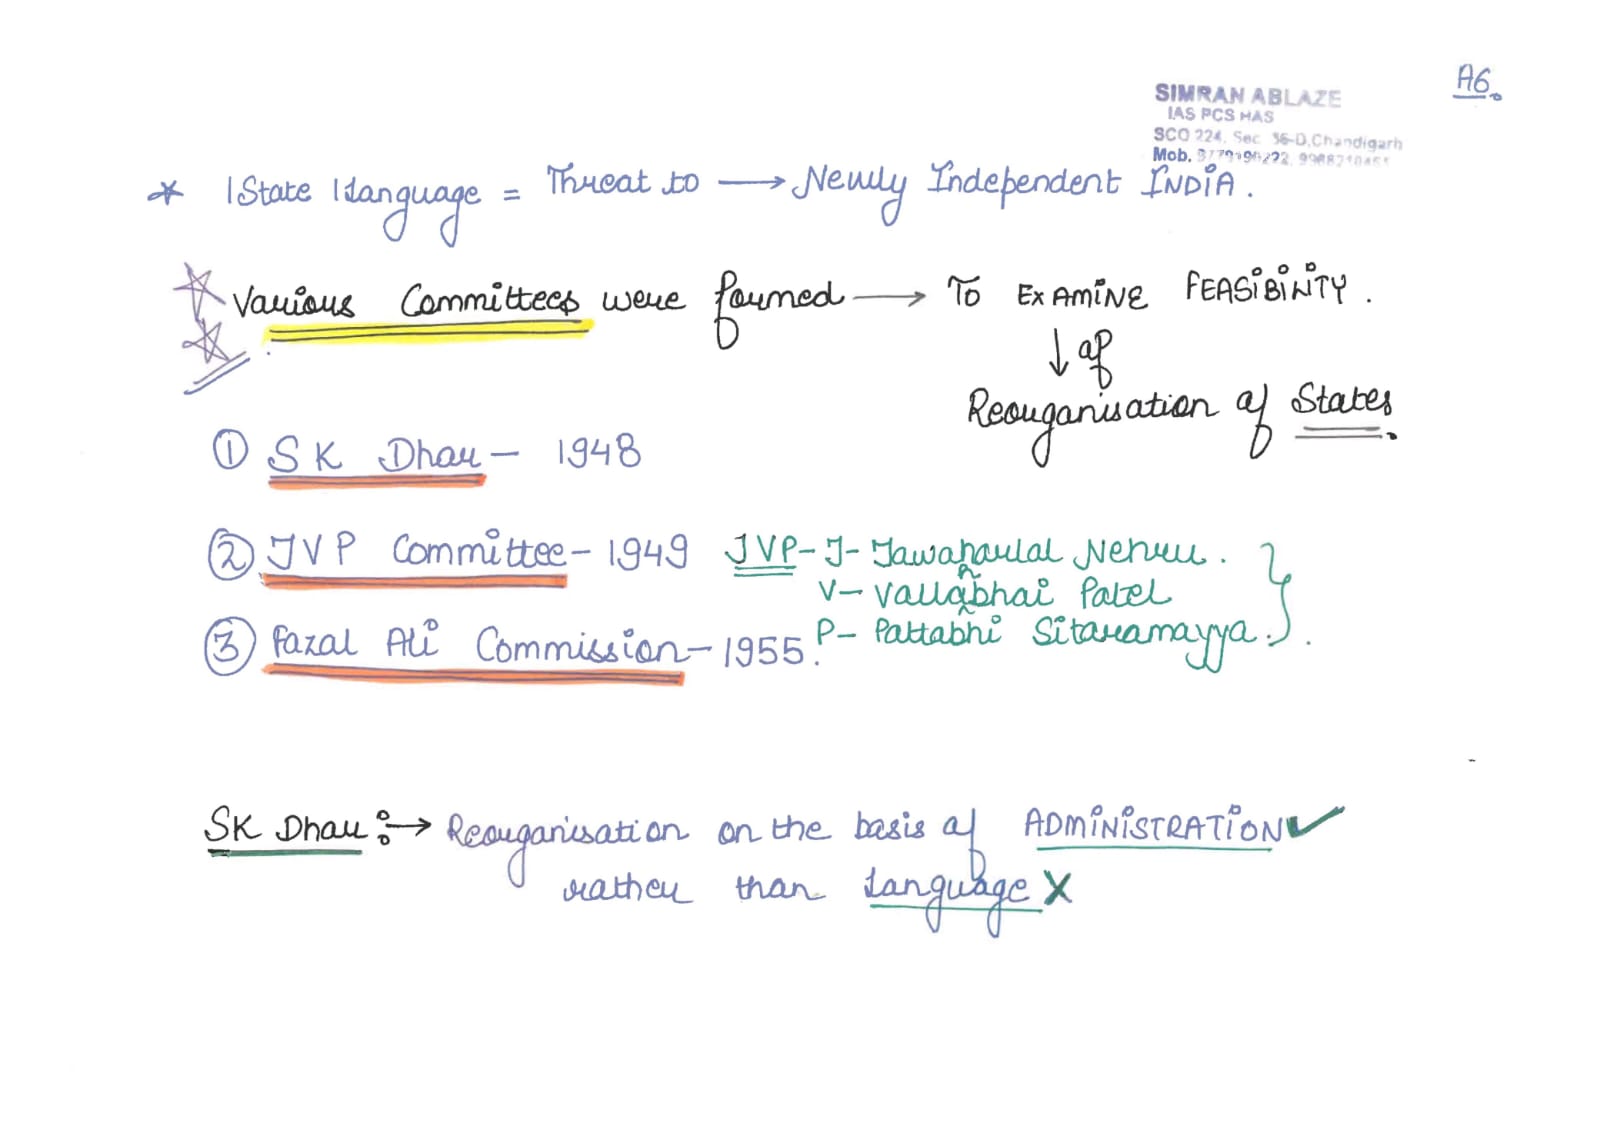 A6.
SIMRAN ABLAZE
IAS PCS HAS
SCO 224, Sec 36-D, Chandigarh
Mob.
* 1State 1language = Threat to → Newly Independent INDIA.
Various Committees were formed → To EXAMINE FEASIBILITY.
↓ of
Reorganisation of States.
① SK Dhar - 1948
② JVP Committee - 1949 JVP - J - Jawaharlal Nehru.
V - Vallabhai Patel
P - Pattabhi Sitaramayya.
③ Fazal Ali Commission - 1955.
SK Dhar :→ Reorganisation on the basis of ADMINISTRATION ✓
rather than language X